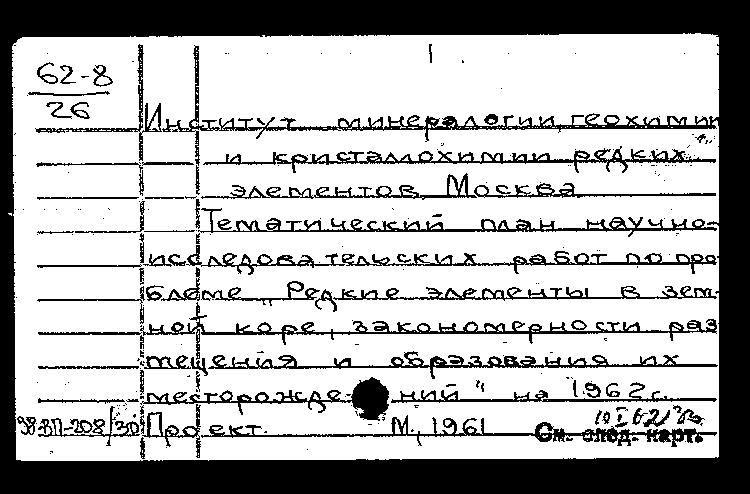 62-8
26
Институт минералогии, геохимии
и кристаллохимии редких
элементов, Москва
Тематический план научно-
исследовательских работ по про
блеме „Редкие элементы в зем-
ной коре, закономерности раз
мещения и образования их
месторожде ний" на 1962 г.
Проект. М., 1961
См. след. карт.